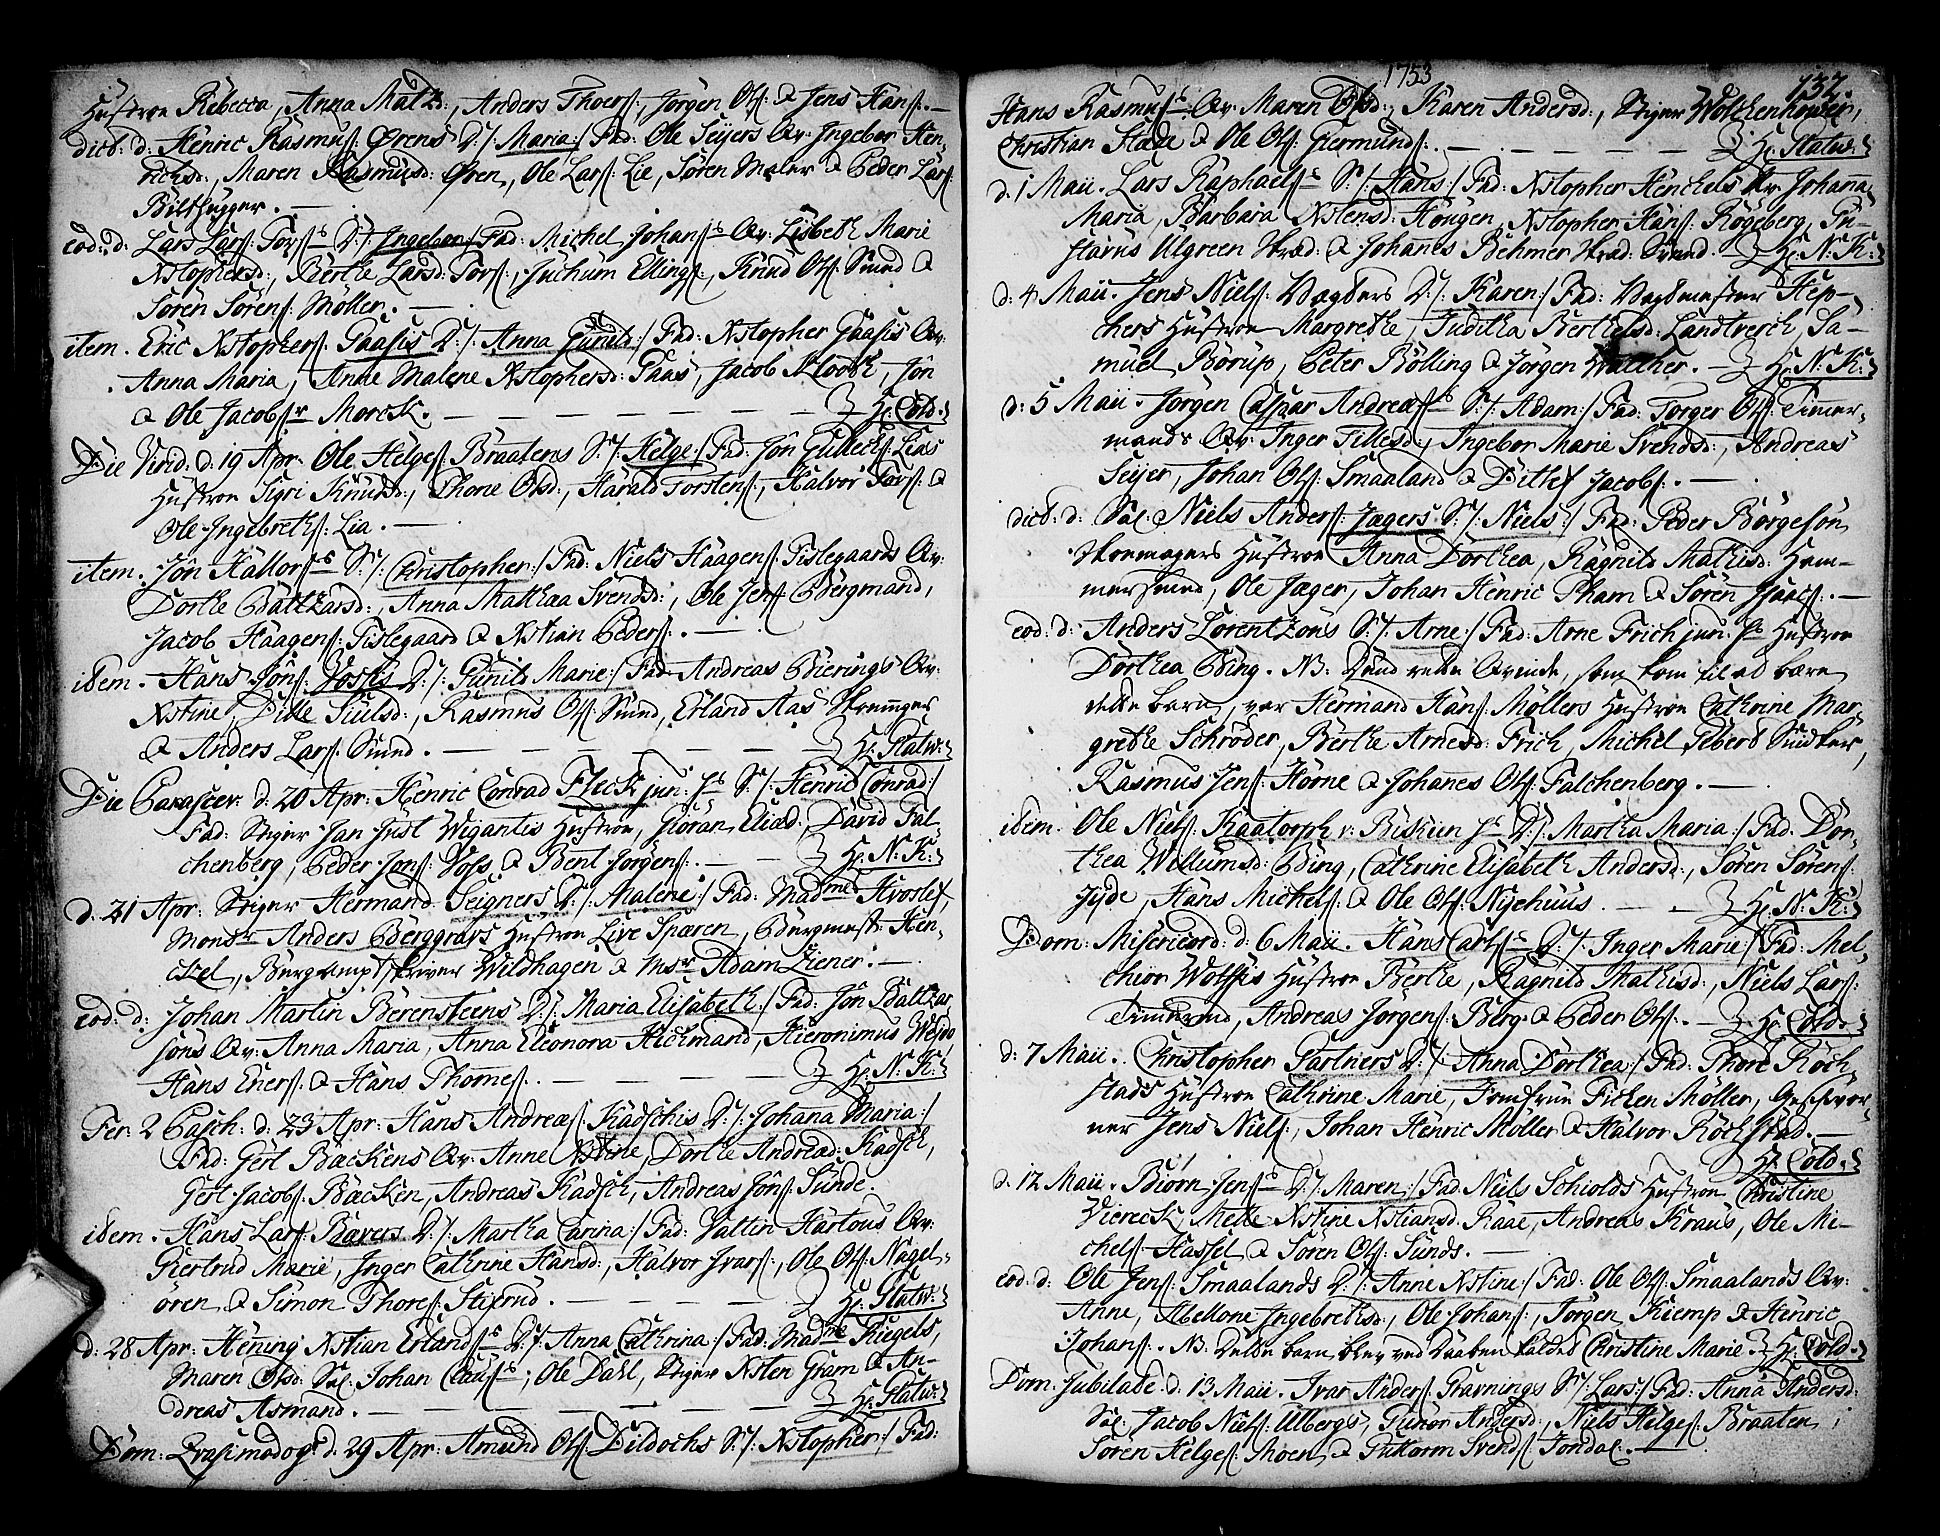 Hustroe Rebecca, Anna Matz:, Anders Thoers:, Jørgen Ols: & Jens Hans:. —
dict: d: Henric Rasmus: Ørens D:/: Maria:/ Fad: Ole Seyers Qv: Ingebor Hen-
richsd:, Maren Rasmusd: Øren, Ole Lars: Lie, Søren Maler & Peder Lars:
Bildhugger. —
eod: d: Lars Lars: Tors:s D:/: Ingebor:/ Fad: Michel Johans:s Qv: Lisbeth Marie
Xstophersd:, Berthe Larsd: Tors:, Juchum Ellings:, Knud Ols: Smed &
Søren Sørens: Möller. —
item. Eric Xstophers: Gaasis D:/: Anna Gunild:/ Fad: Xstopher Gaasis Qv:
Anna Maria, Anne Malene Xstophersd: Gaas, Jacob Klooth, Jôn
& Ole Jacobs:r Morck. — Hr: Cold.
Die Virid: d: 19 Apr. Ole Helges: Braatens S:/: Helge:/ Fad: Jôn Gullechs: Lias
Hustroe Sigri Knudsd:, Thone Olsd:, Harald Torstens:, Halvor Tors: &
Ole Ingebreths: Lia. —
item. Jôn Hallors:s S:/: Christopher:/ Fad: Niels Haagens: Tislegaards Qv:
Dorthe Baltzarsd:, Anna Mathæa Svendsd:, Ole Jens: Bergmand,
Jacob Haagens: Tislegaard & Xstian Peders:. —
idem. Hans Jôns: Vosss D:/: Gunild Marie:/ Fad: Andreas Bierings Qv:
Xstine, Ditle Siulsd:, Rasmus Ols: Smed, Erland Aas Skomager
& Anders Lars: Smed. — Hr: Statw:
Die Parascev: d: 20 Apr: Henric Conrad Fleck jun: hs S:/: Henric Conrad:/
Fad: Stiger Jan Just Wigantis Hustroe, Gioran Eliæd:, David Fal-
chenberg, Peder Jons: Voss & Bent Jörgens:. — Hr: N: K:
d: 21 Apr: Stiger Hermand Seigners D:/: Malene:/ Fad: Madme Hvoslef,
Monsr Anders Berggravs Hustroe Live Spæren, Burgmest: Hen-
ckel, Bergampt skriver Wildhagen & Msr Adam Ziener. —
eod: d: Johan Martin Berensteens D:/: Maria Elisabeth:/ Fad: Jôn Baltzar
söns Qv: Anna Maria, Anna Eleonora Hickmand, Hieronimus
Hans Eners: & Hans Thomes:. — Hr: N: K:
Fer: 2 Pasch: d: 23 Apr: Hans Andreæs: Kadschis D:/: Johana Maria:/
Fad: Gert Bæckens Qv: Anne Xstine, Dorthe Andreæd: Kadsch,
Gert Jacobs: Bæcken, Andreas Kadsch, Andreas Jôns: Sunde.
idem. Hans Lars: Bævers D:/: Martha Carina:/ Fad: Valtin Hartous Qv:
Giertrud Marie, Inger Cathrine Hansd:, Halvor Ivars:, Ole Ols: Nagel-
ören & Simon Thores: Stixrud. — Hr: Statw:
d: 28 Apr. Hening Xstian Erlands:s D:/: Anna Cathrina:/ Fad: Madme Kiegels,
Maren Olsd: Sal: Johan Claus:s; Ole Dahl, Stiger Xsten Gram & An-
dreas Asmand. — Hr: Statw:
Dom: Qvasimodog: d: 29 Apr: Amund Ols: Dildochs S:/: Xstopher:/ Fad:
1753
132.
Hans Rasmus:s Qv: Maren Olsd:, Karen Andersd:, Stiger Wolckenhower,
Christian Stade & Ole Ols: Giermunds:. — Hr: Statw:
d: 1 Maii. Lars Raphaels:s S:/: Hans:/ Fad: Xstopher Henckels Qv: Johana
Maria, Barbara Xstensd: Hougen, Xstopher Hans: Rögeberg, Gu-
stavus Ulgreen Skræd: & Johanes Behmer Skræd: Svend. — Hr: N: K:
d: 4 Maii. Jens Niels: Vegters D:/: Karen:/ Fad: Vagtmester Hep-
chers Hustroe Margrethe, Juditha Berthelsd: Landtverch, Sa-
muel Borup, Peter Bölling & Jörgen Walther. — Hr: N: K:
d: 5 Maii. Jörgen Caspar Andreæs:s S:/: Adam:/ Fad: Torger Ols: Timer-
mands Qv: Inger Tillesd:, Ingebor Marie Svendsd:, Andreas
Seyer, Johan Ols: Smaaland & Ditlef Jacobs:. —
dict: d: Sal: Niels Anders: Jægers S:/: Niels:/ Fad: Peder Börgesön
Skomagers Hustroe Anna Dorthea, Ragnild Mathisd: Ham-
mersmed, Ole Jæger, Johan Henric Pham & Sören Isaacs:. —
eod: d: Anders Lorentzöns S:/: Arne:/ Fad: Arne Frich jun: hs Hustroe
Dorthea Bing. NB: Dend rette Qvinde, som kom til at bære
dette barn, var Hermand Hans: Möllers Hustroe Cathrine Mar-
grethe Schröder, Berthe Arnesd: Frich, Michel Gebert Snidker,
Rasmus Jens: Horne & Johanes Ols: Falchenberg. —
idem. Ole Niels: Kaatorph v: Biskien hs D:/: Martha Maria:/ Fad: Dor-
thea Willumsd: Bing, Cathrine Elisabeth Andersd:, Sören Sörens:
Jyde, Hans Michels: & Ole Ols: Nyehuus. — Hr: N: K:
Dom: Misericord: d: 6 Maii. Hans Carls:s D:/: Inger Marie:/ Fad: Mel-
chior Wolffis Hustroe Berthe, Ragnild Mathisd:, Niels Lars:
Andreas Jörgens: Berg & Peder Ols:. — Hr: Cold.
d: 7 Maii. Christopher Partners D:/: Anna Dorthea:/ Fad: Thore Röch-
stads Hustroe Cathrine Marie, Jomfrue Ficken Möller, Geschwor-
ner Jens Niels:, Johan Henric Möller & Halvor Röchstad. —
Hr: Cold.
d: 12 Maii. Biörn Jens:s D:/: Maren:/ Fad: Niels Schiolds Hustroe Christine
Viereck, Mette Xstine Xstiansd: Raae, Andreas Kraus, Ole Mi-
chels: Hassel & Sören Ols: Sunds. —
eod: d: Ole Jens: Smaalands D:/: Anne Xstine:/ Fad: Ole Ols: Smaalands Qv:
Anne, Abellone Ingebrethsd:, Ole Johans:, Jörgen Kiemp & Henric
Johans:. NB: Dette barn blev ved Daaben kaldet Christine Marie Hr: Cold.
Dom: Jubilate d: 13 Maii. Ivar Anders: Gravnings S:/: Lars:/ Fad: Anna Andersd:
Sal: Jacob Niels: Ulbergs, Gunor Andersd:, Niels Helges: Braaten,
Sören Helges: Moen & Guttorm Svends: Jondal. —